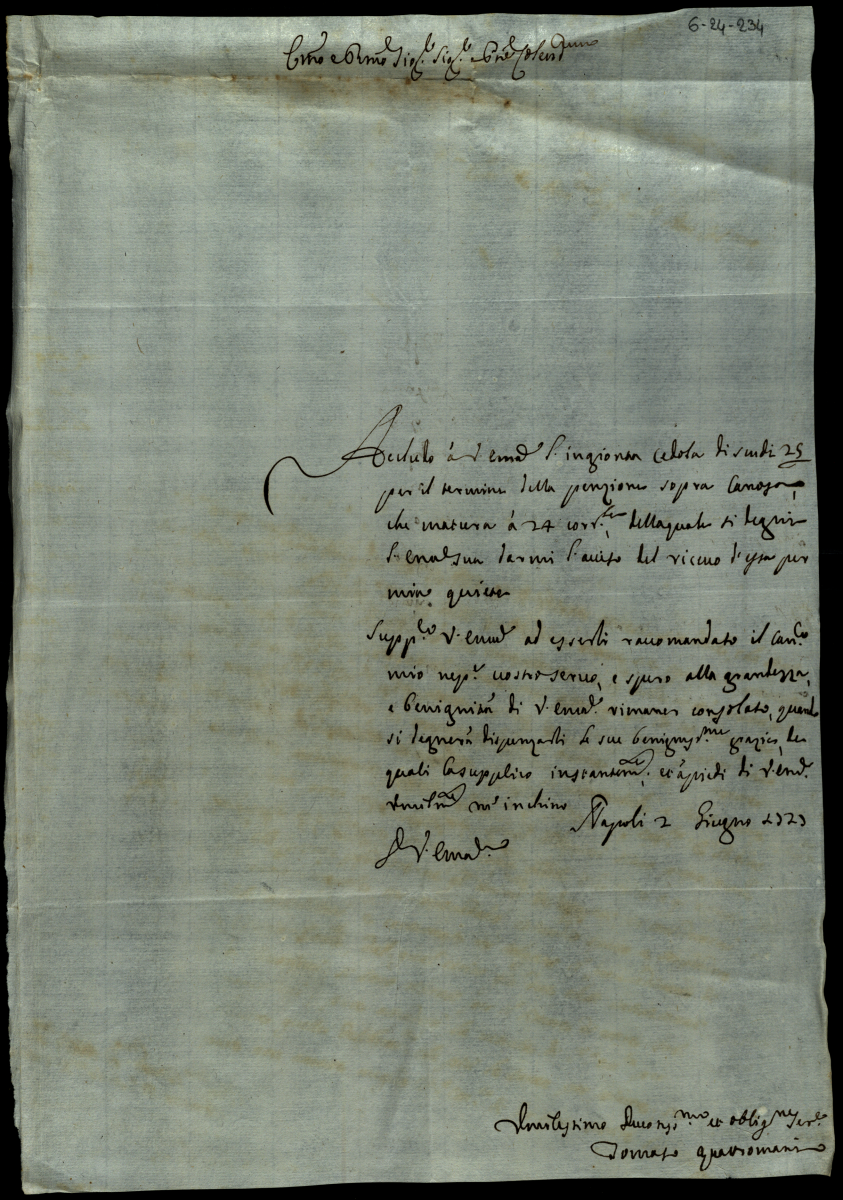 6-24-234
Em̃o e Rmo Sig.r Sig.r e Pne Colend.mo
Accludo à V. Emã l'ingionta cedola di scudi 25
per il termine della penzione sopra Canosa,
che matura à 24 corr.te, della quale si degni
l'Emã Sua darmi l'aviso del ricevo d'essa per
mia quiete
Supp.co V. Emã ad esserli racomandato il Can.co
mio nep.e vostro servo, e spero alla grandezza,
e benignità di V. Emã rimaner consolato, quando
si degnerà dispenzarli le sue benigniss.me grazie, le
quali la supplico instantem.te, et à piedi di V. Em.
Umilm.te m'inchino Napoli 2 Giugno 1723
D V. Emã
Umilissimo Divotiss.mo et oblig.mo Ser.e
Donato Quatromani